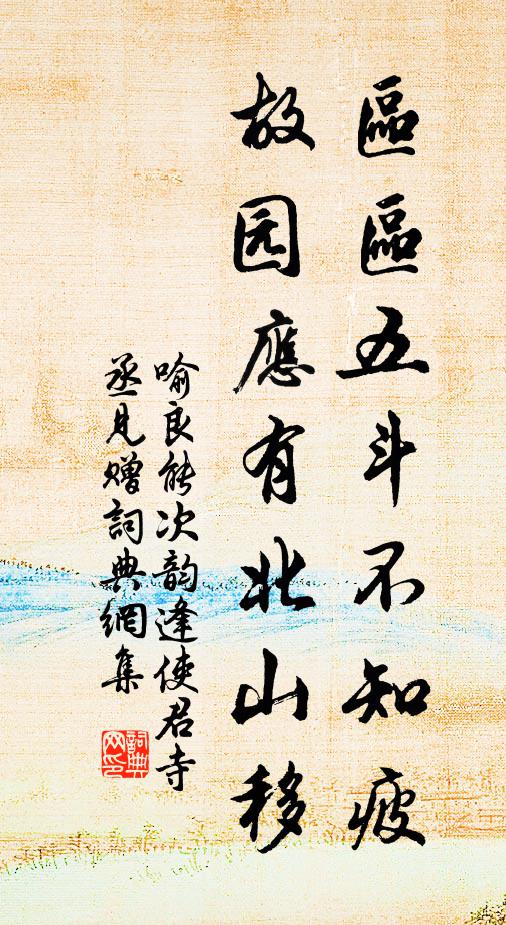 區區五斗不知疲
故园應有北山移
喻良能次韵逢使君寺
丞見赠詞典網集
詞典
网印